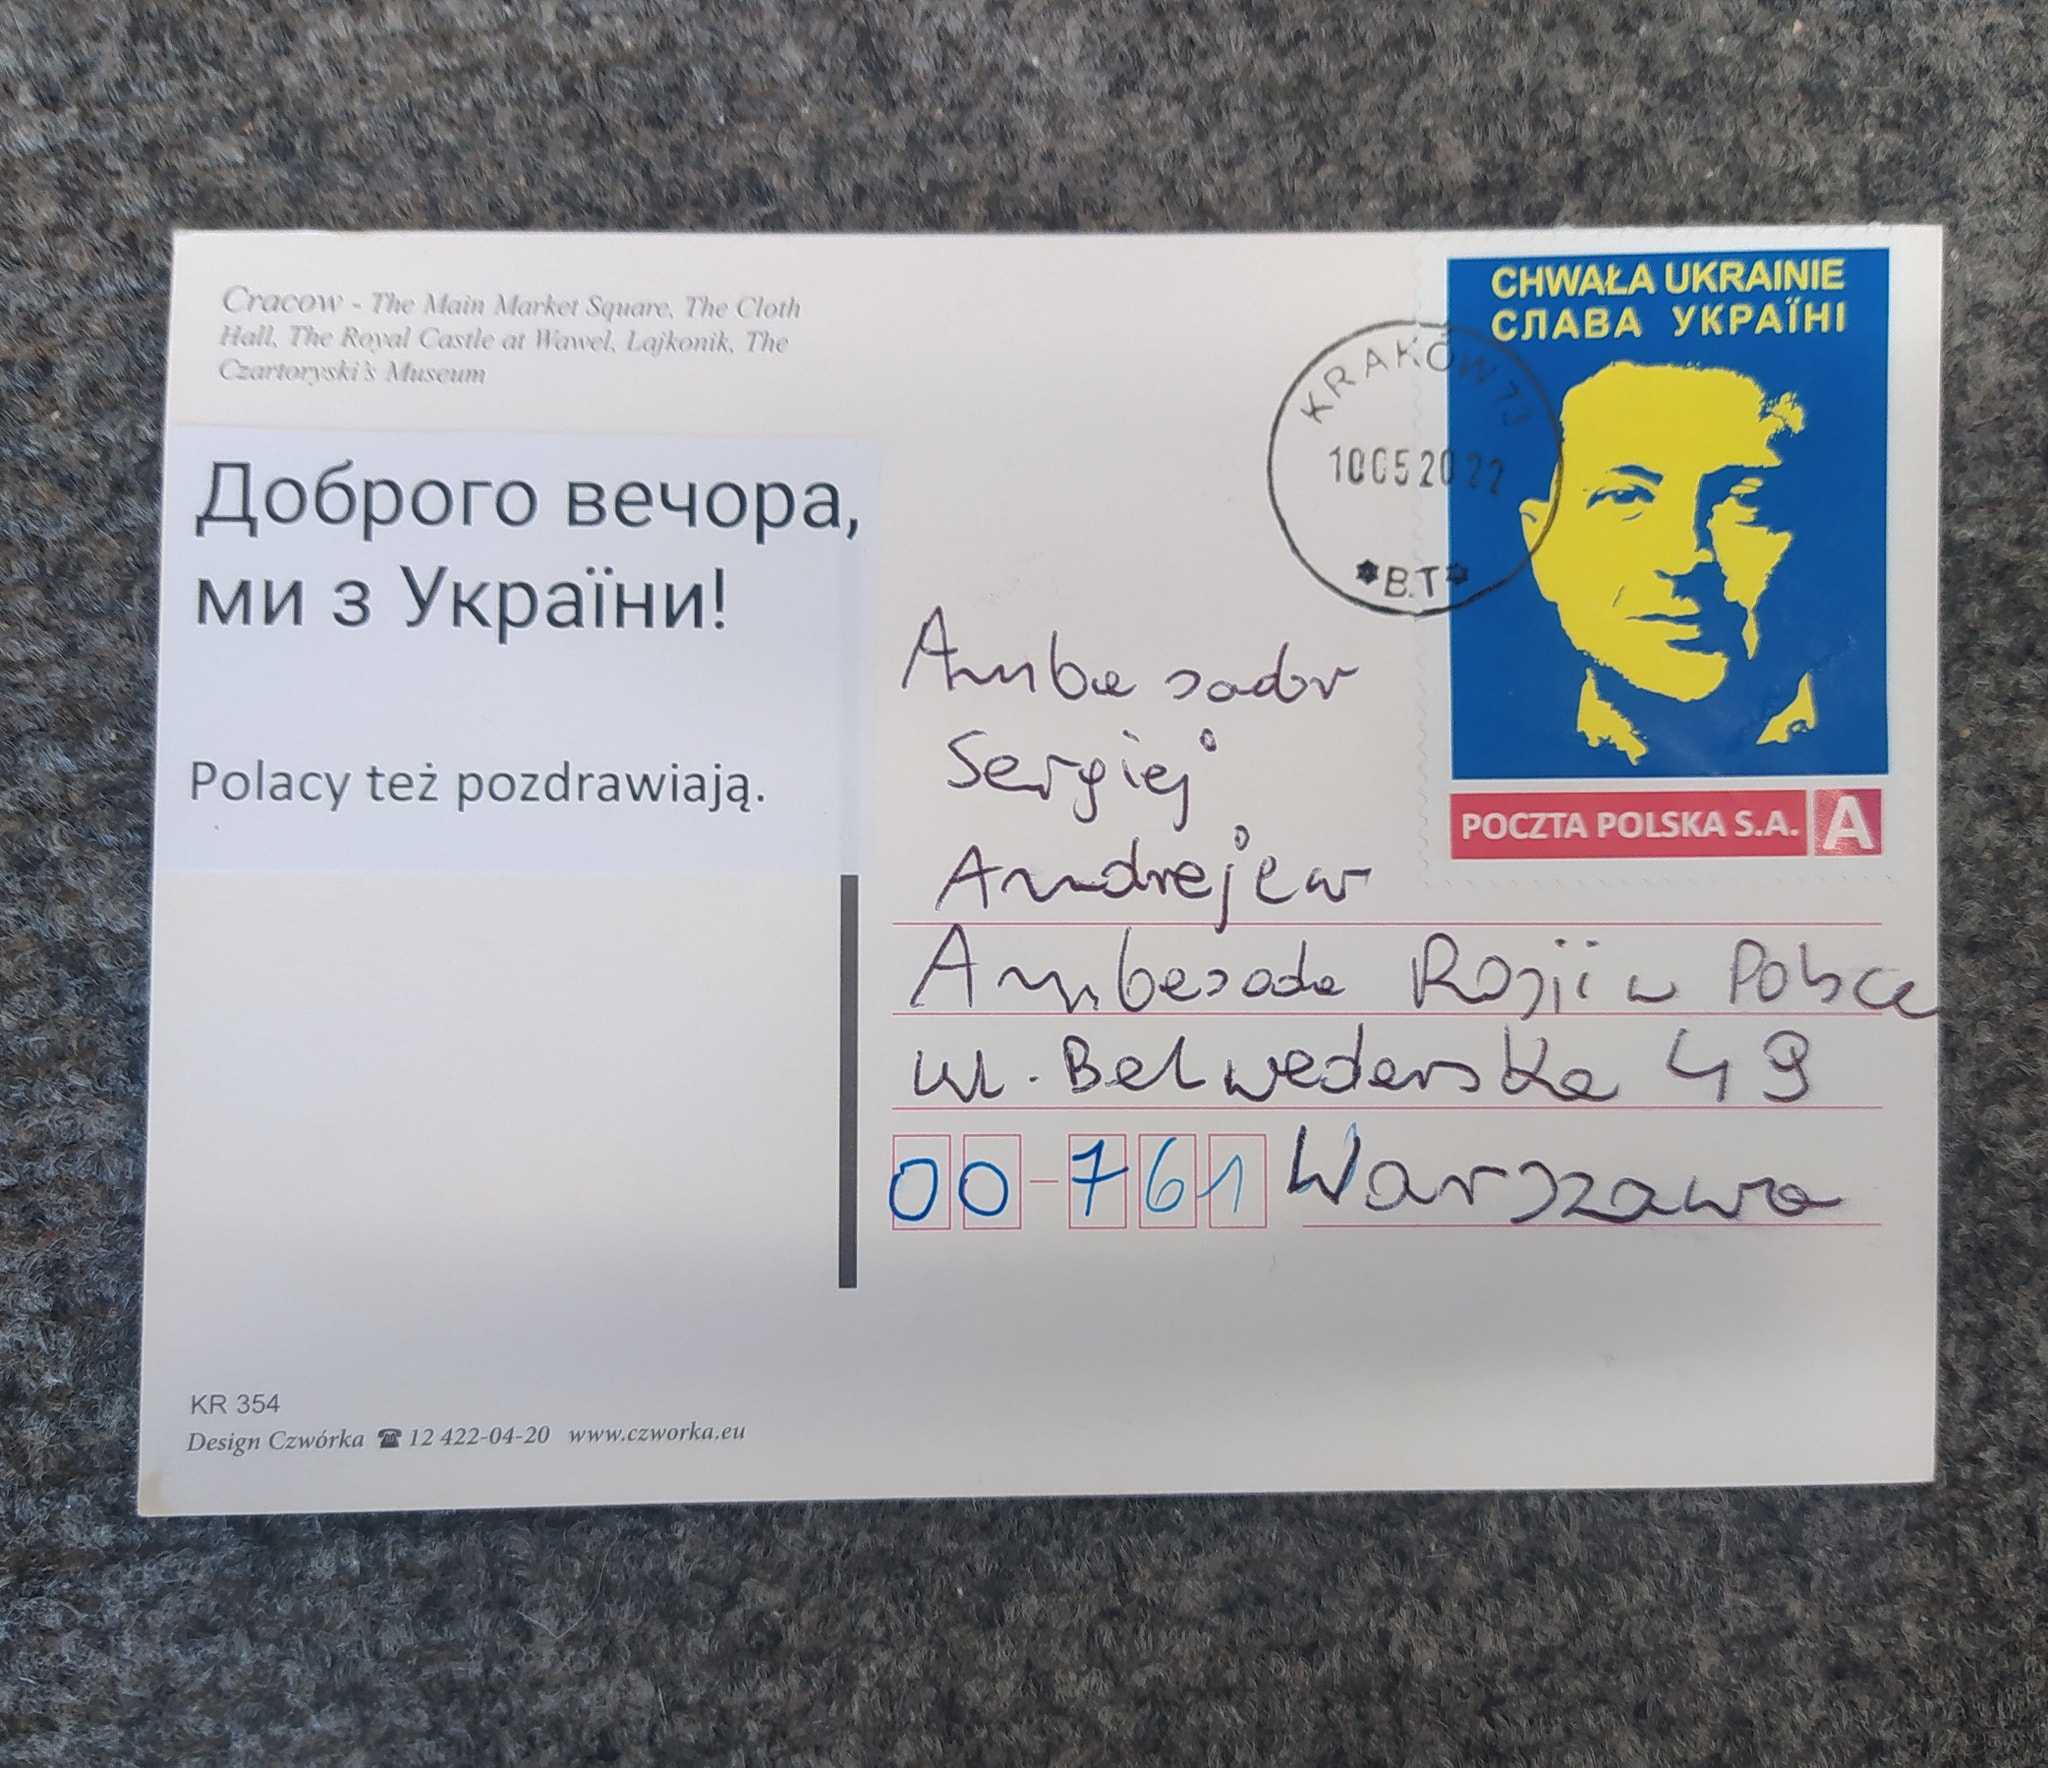 Cracow - The Main Market Square, The Cloth
Hall, The Royal Castle at Wawel, Lajkonik, The
Czartoryski's Museum
Доброго вечора,
ми з України!
Polacy też pozdrawiają.
KR 354
Design Czwórka ☎ 12 422-04-20 www.czworka.eu
CHWAŁA UKRAINIE
СЛАВА УКРАЇНІ
POCZTA POLSKA S.A. A
KRAKÓW 73
10052022
*B.T*
Ambasador
Sergiej
Andrejew
Ambasada Rosji w Polsce
ul. Belwederska 49
00-761 Warszawa